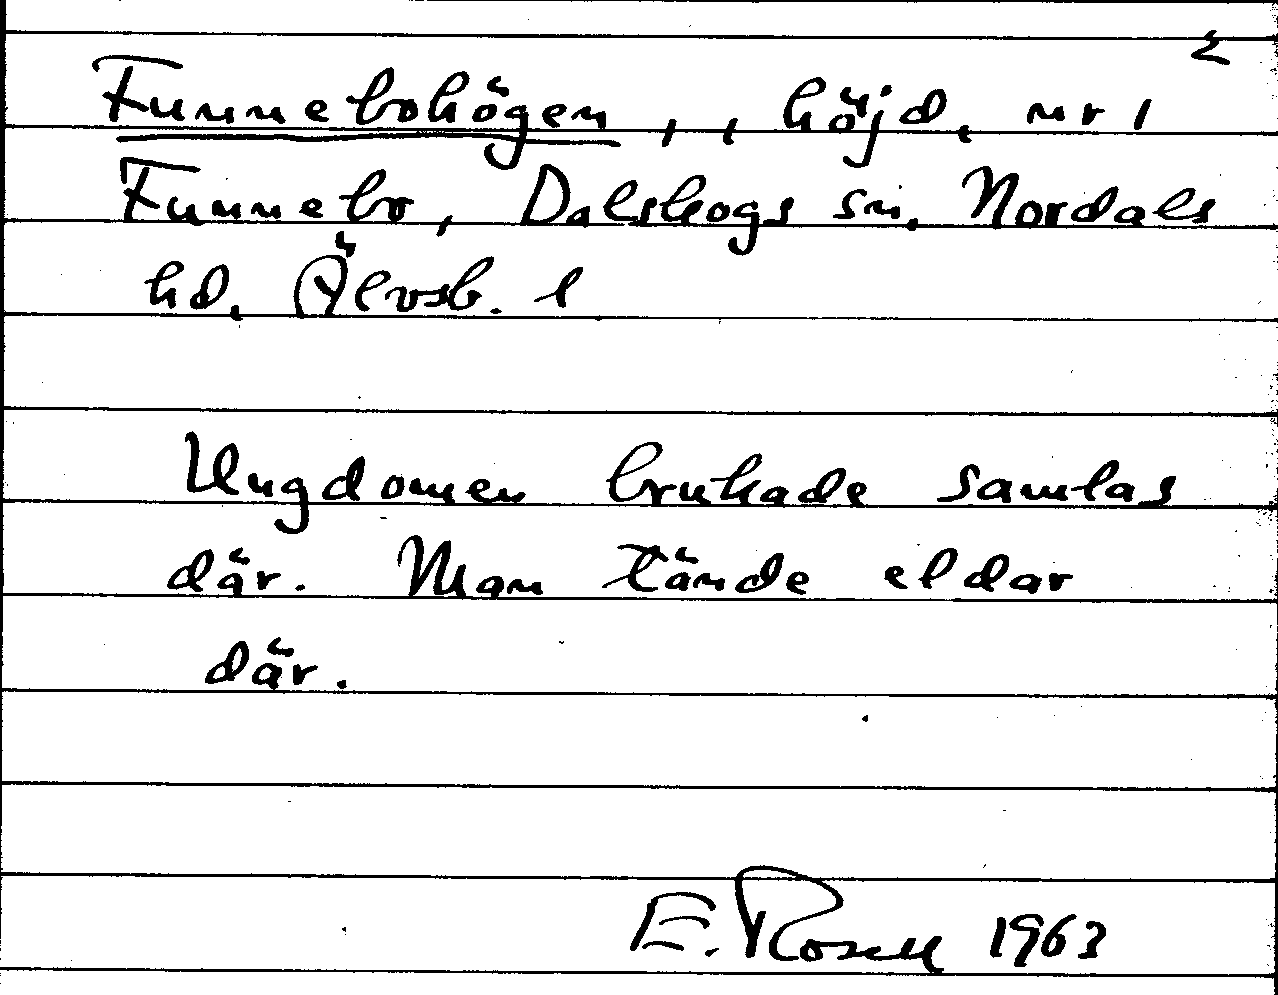 Funnebohögen, , höjd, nr 1
Funnebo, Dalskogs sn, Nordals
hd, Älvsb. l
Ungdomen brukade samlas
där. Man tände eldar
där.
E. Rosell 1963